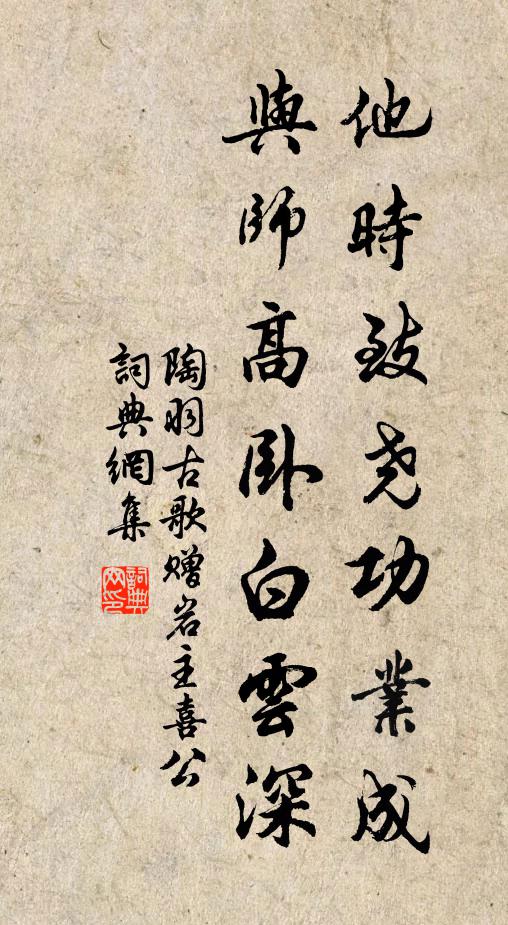 他時致尧功業成
與師高卧白雲深
陶羽古歌贈岩主喜公
詞典網集
詞典